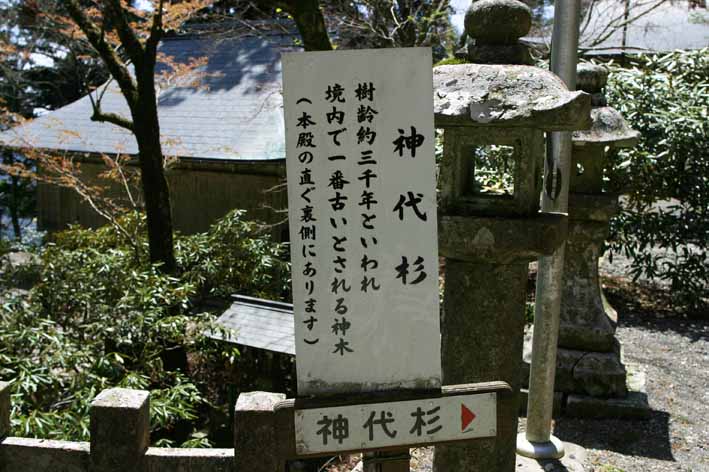 神代杉
樹齢約三千年といわれ
境内で一番古いとされる神木
(本殿の直ぐ裏側にあります)
神代杉